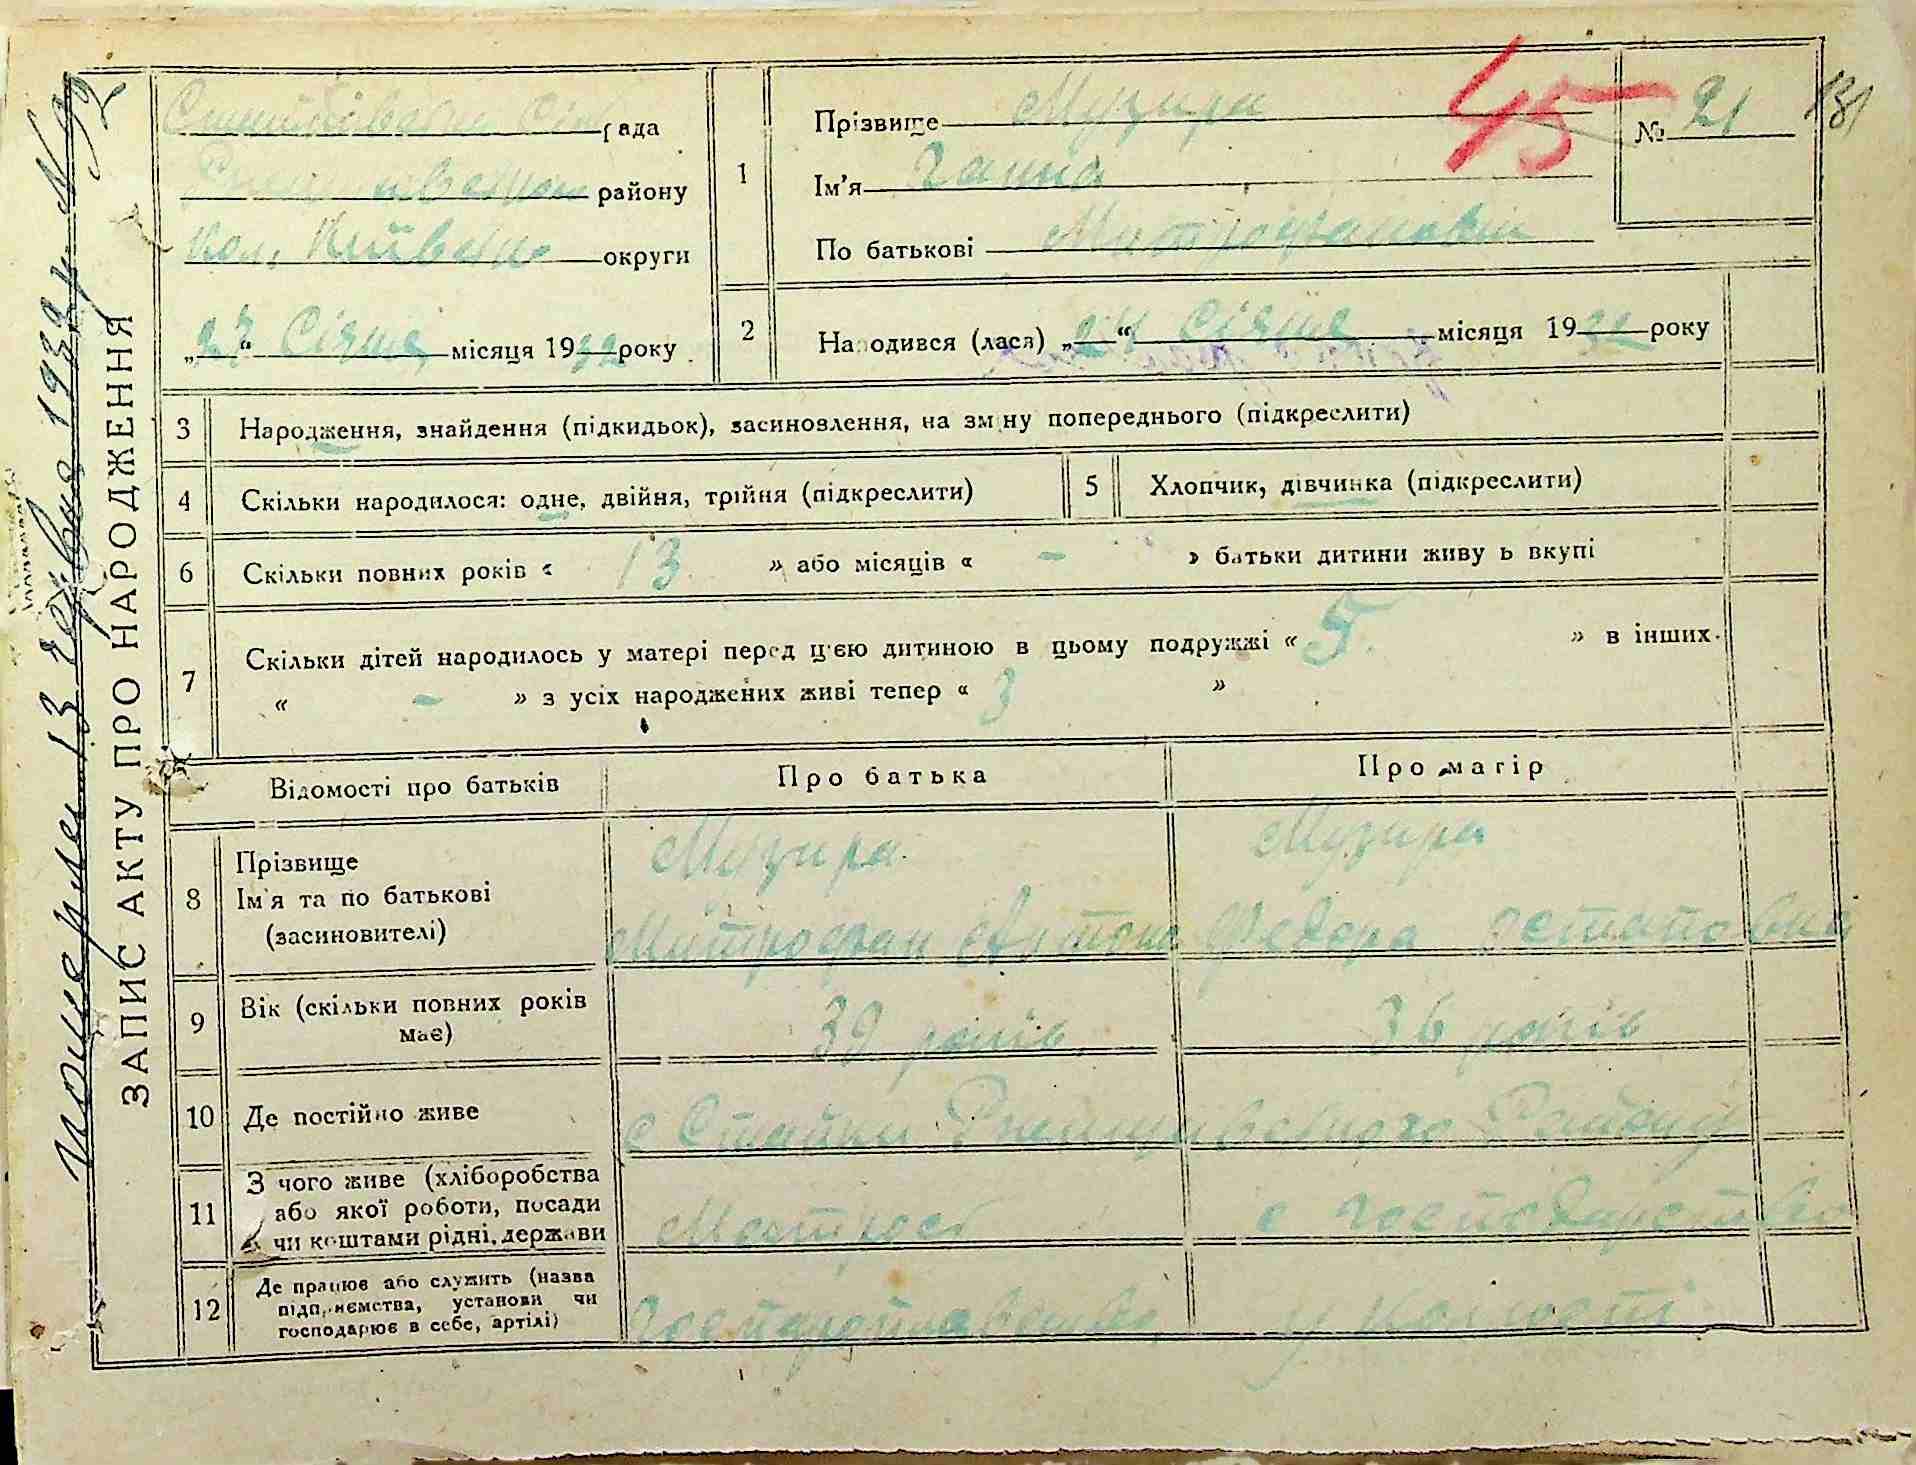 померли 13 червня 1932 р. №92
ЗАПИС АКТУ ПРО НАРОДЖЕННЯ
рада
району
кол. Київсько округи
„27“ Січня місяця 1932 року
1
Прізвище Музира
Ім'я Ганна
По батькові Митрофановна
45
№ 21
131
2
Народився (лася) „24“ Січня місяця 1932 року
3 Народження, знайдення (підкидьок), засиновлення, на зміну попереднього (підкреслити)
4 Скільки народилося: одне, двійня, трійня (підкреслити)
5 Хлопчик, дівчинка (підкреслити)
6 Скільки повних років « 13 » або місяців « - » батьки дитини живуть вкупі
7 Скільки дітей народилось у матері перед цією дитиною в цьому подружжі « 5 » в інших
« - » з усіх народжених живі тепер « 3 »
Відомості про батьків
Про батька
Про матір
8 Прізвище
Ім'я та по батькові
(засиновителі)
Музира
Митрофан Антон
Музира
Федора Остаповна
9 Вік (скільки повних років
має)
39 років
36 років
10 Де постійно живе
с Стайки Ржищівського Району
11 З чого живе (хліборобства
або якої роботи, посади
чи коштами рідні, держави
Матрос
с господарство
12 Де працює або служить (назва
підприємства, установи чи
господарює в себе, артілі)
у Колгоспі